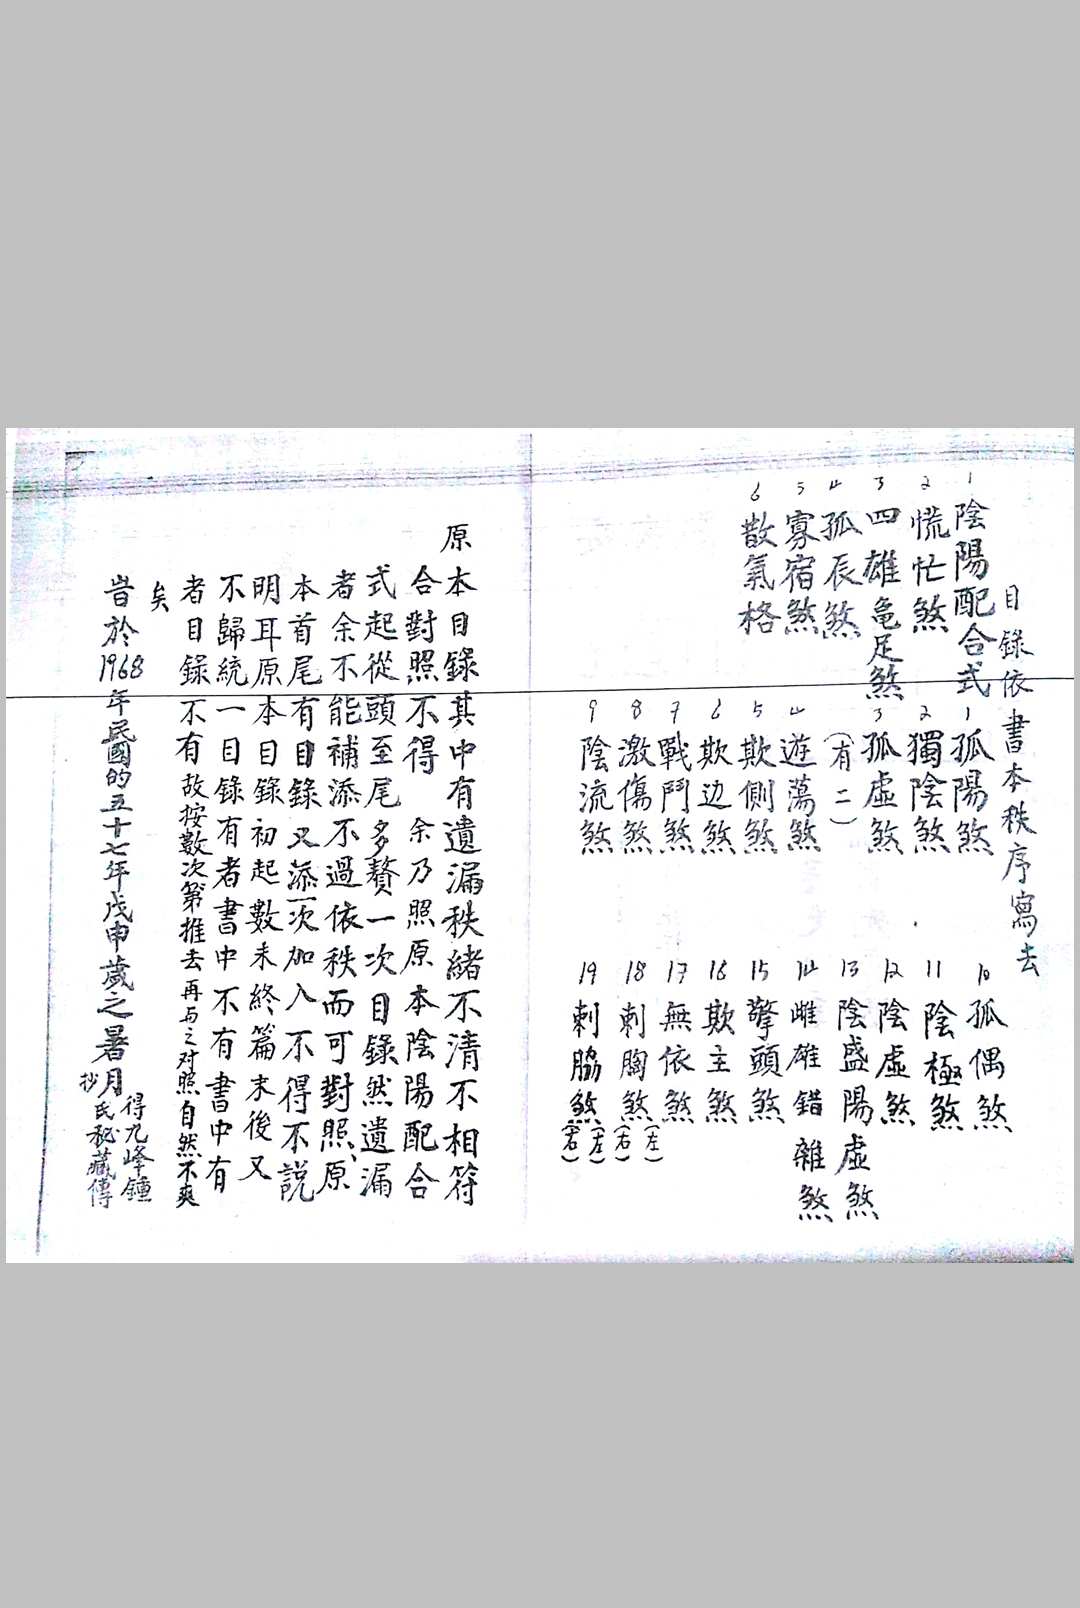 目錄依書本秩序寫去
1 陰陽配合式
2 慌忙煞
3 四雄龟足煞
4 孤辰煞
5 寡宿煞
6 散氣格
1 孤陽煞
2 獨陰煞
3 孤虛煞
(有二)
4 遊蕩煞
5 欺側煞
6 欺边煞
7 戰鬥煞
8 激傷煞
9 陰流煞
10 孤偶煞
11 陰極煞
12 陰虛煞
13 陰盛陽虛煞
14 雌雄錯雜煞
15 擎頭煞
16 欺主煞
17 無依煞
18 刺胸煞(左)(右)
19 刺脇煞(左)(右)
原本目錄其中有遺漏秩緒不清不相符
合對照不得 余乃照原本陰陽配合
式起從頭至尾多贅一次目錄然遺漏
者余不能補添不過依秩而可對照、原
本首尾有目錄又添一次加入不得不說
明耳原本目錄初起數未終篇末後又
不歸統一目錄有者書中不有書中有
者目錄不有故按數次第推去再与之对照自然不爽
矣
旹於1968年民國的五十七年戊申歲之暑月
得九峰鍾
氏秘藏傳
抄